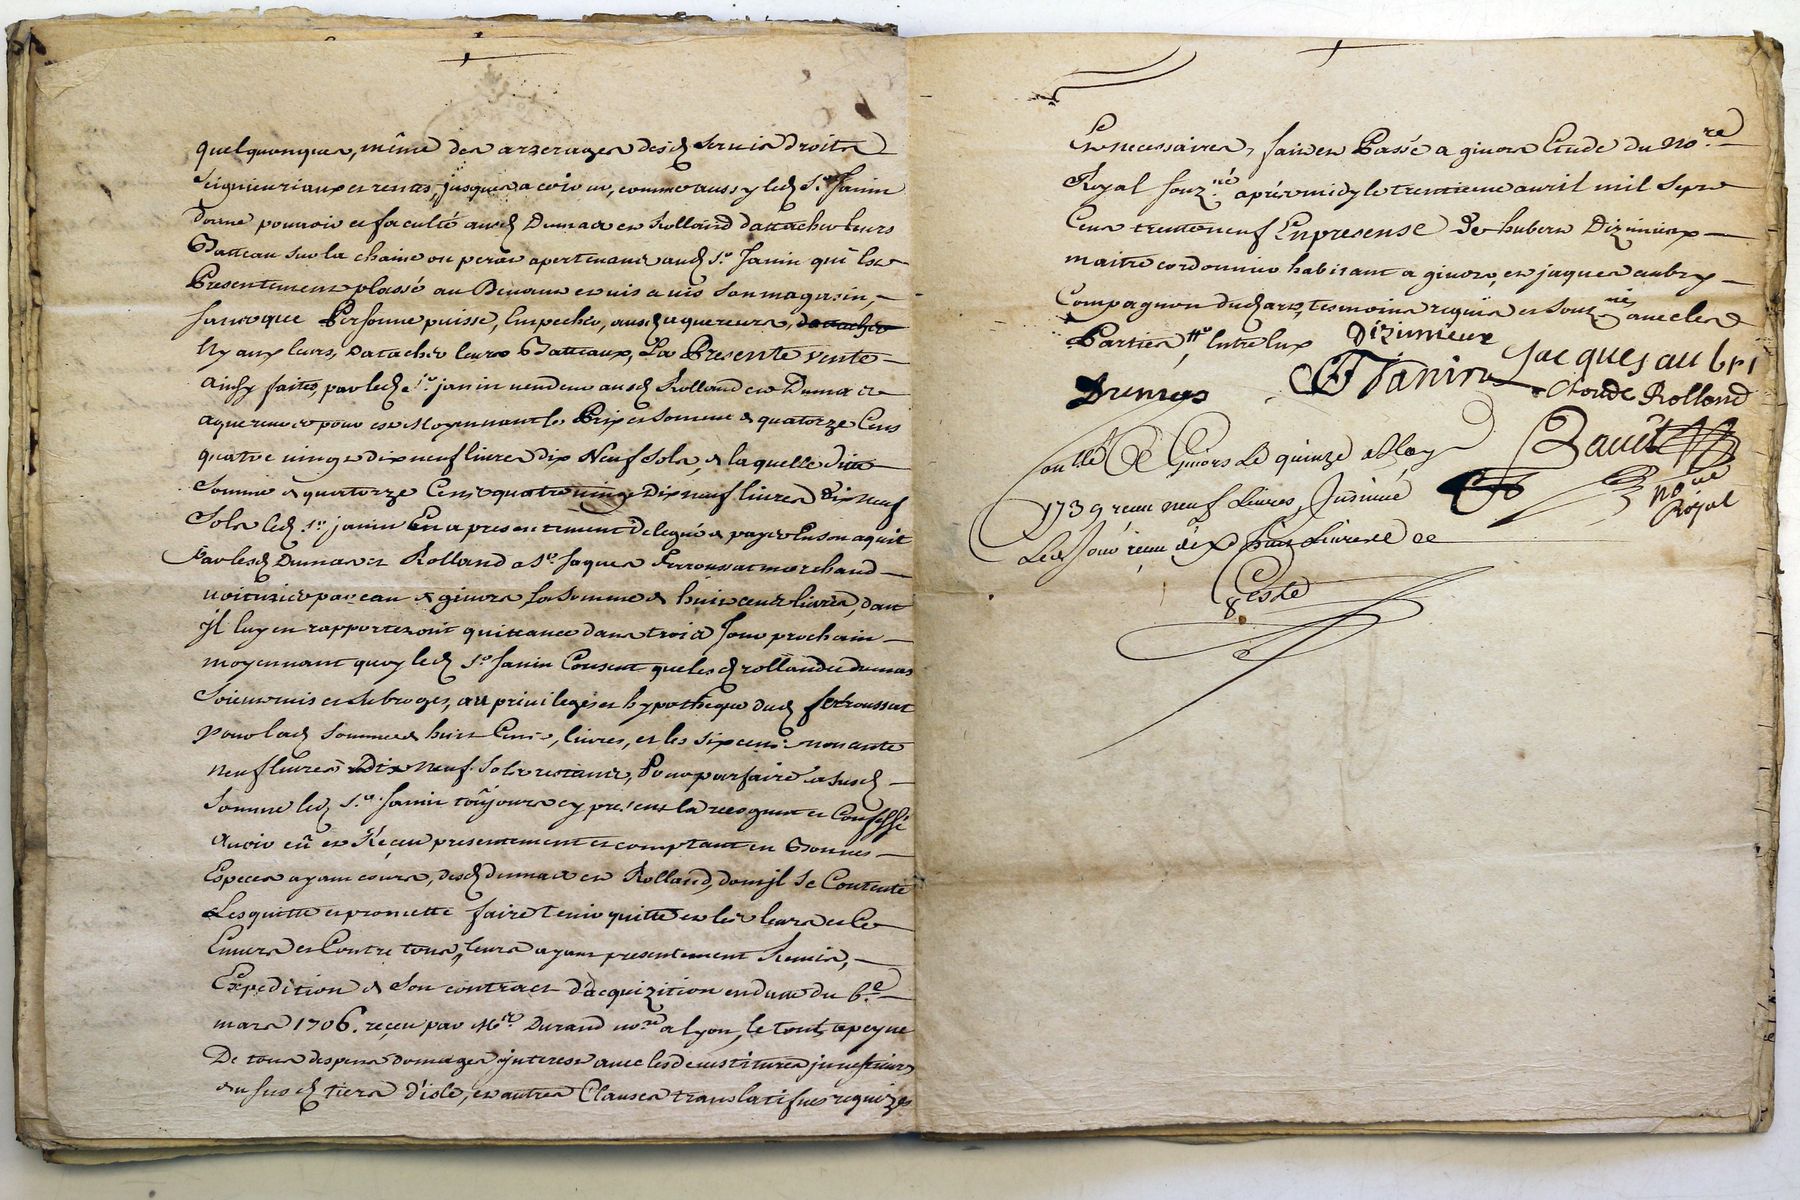 quelquonques, même des arrerages desd servis droits
seignieuriaux et rentes, jusques a ce jour, comme aussy led Sr Janin
donne pouvoir et faculté ausd Dumas et Rolland d'attacher leurs
Batteau sur la chaine ou peroir apertenant aud Sr Janin qui Est
Presentement plassé au Devant et vis a vis son magasin,
sans que Personne puisse, Empecher, ausd aquereurs,
Ny aux leurs, Datacher leurs Batteaux, La Presente vente
ainsy faitte, par led Sr janin vendeur ausd Rolland et Dumas
aquereurs pour et Moyennant le Prix et somme de quatorze Cens
quatre vingt dix neuf livres dix Neuf sols, de laquelle ditte
somme de quatorze Cens quatre vingt Dix neuf livres dix neuf
sols led Sr janin En a presentement delegué a payer En son aquit
Par lesd Dumas et Rolland a Sr Jaques Ferroussat marchand
voiturier par eau de givors la somme de huit cent livres, dont
Jl luy en rapporteront quittance dans trois Jour prochain
moyennant quoy led Sr Janin Consent que lesd rolland et dumas
soient mis et subroges, au privileges et hypotheque dud ferroussat
pour lad somme de huit Cens, livres, et les six cens nonante
neuf livres Dix neuf sols restants, Pour parfaire la susd
somme led Sr Janin toûjours cy present la recognut et Confessé
avoir eû et Reçeu presentement et comptant en Bonnes
Especes ayant cours, desd dumas et Rolland, dont jl se Contente
Les quitte et promette faire tenir quitte et les leurs et Ce
Envers et Contre tous, leurs ayant presentement Remis,
Expedition de son contract d'acquizition en datte du 6e
mars 1706. reçeu par Mr Durand nore a lyon, le tout a peyne
De tous despens domages jnterest avec les devestitures jnvestitures
du susd tiers d'isle, et autres Clauses translatifves requizes
Et necessaires, fait et Passé a givors Etude du Nore
Royal souzné aprés midy le trentieme avril mil sept
Cens trente neuf En presense de hubert Dizimieux
maitre cordonnier habitant a givors, et jaques aubry
Compagnon temoins requis et souznés avec les
Parties Entre eux
Dizimieux
Jacques aubri
Janin
Dumas
Claude Rolland
Bauët
Nore
Royal
Conllé A Givors Le quinze May
1739 reçeu neuf Livres, Jnsinué
Led Jour reçeu dix huit Livres